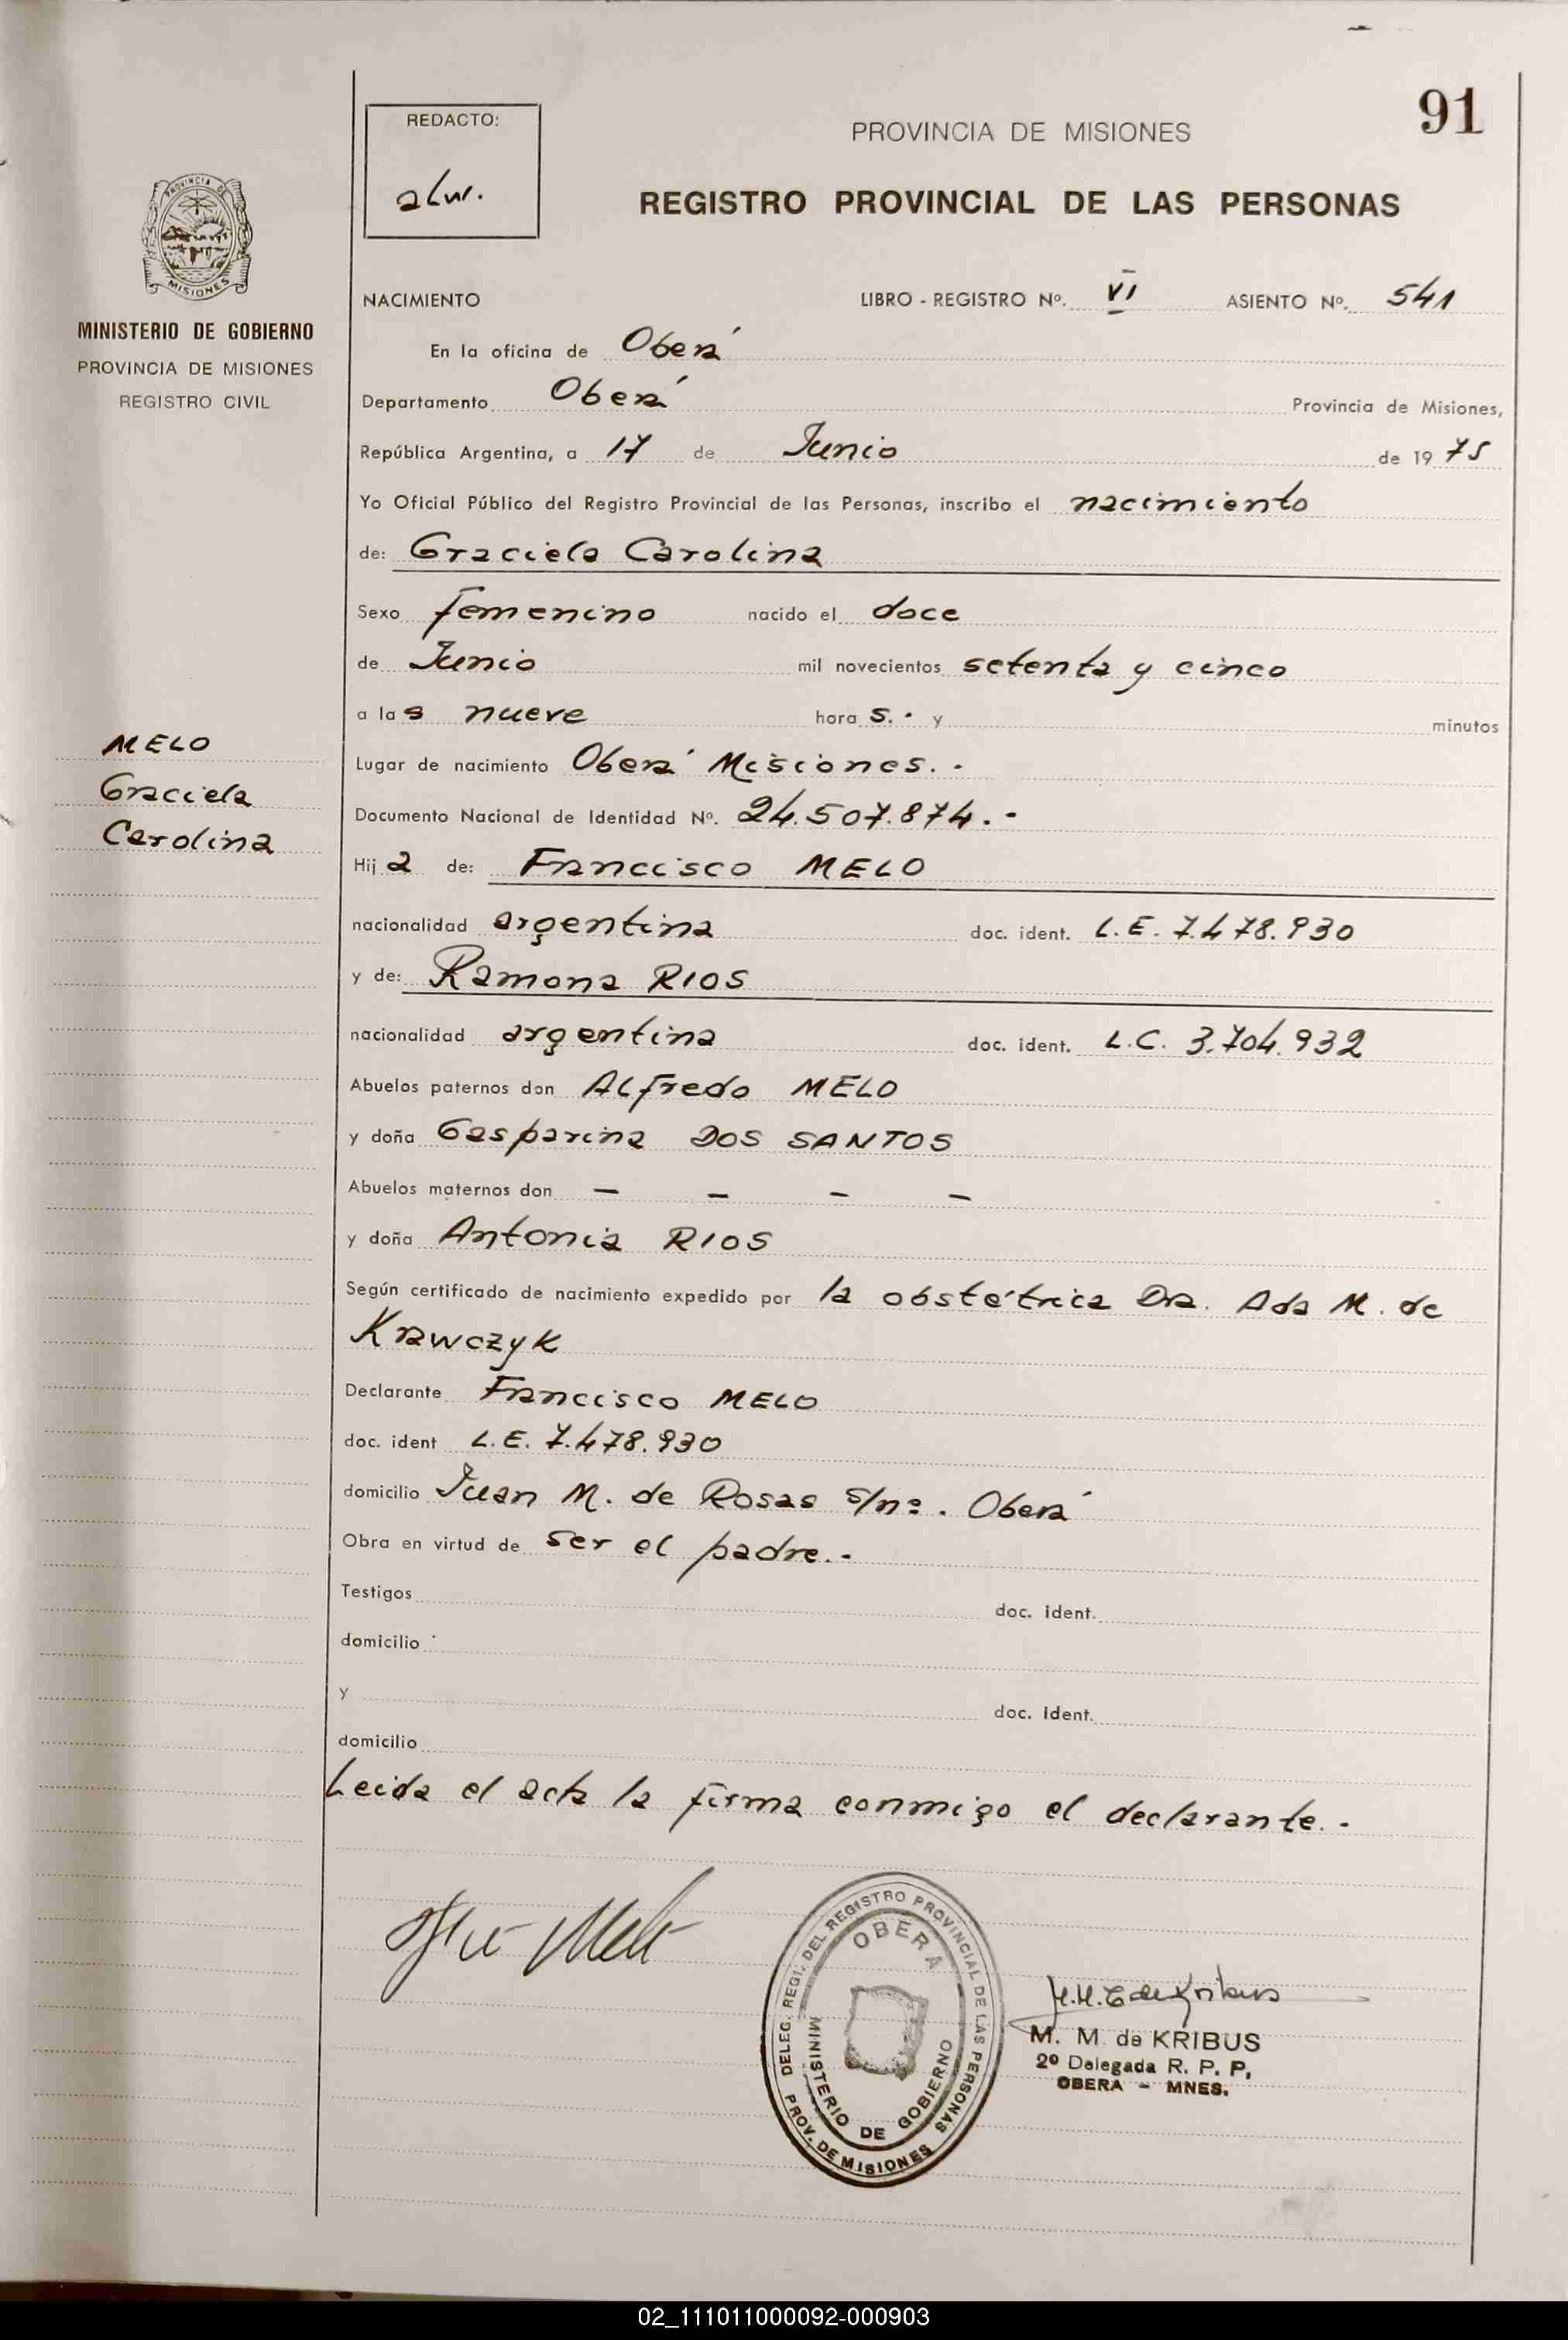 91
REDACTO:
PROVINCIA DE MISIONES
REGISTRO PROVINCIAL DE LAS PERSONAS
PROVINCIA DE
MISIONES
MINISTERIO DE GOBIERNO
PROVINCIA DE MISIONES
REGISTRO CIVIL
MELO
Graciela
Carolina
NACIMIENTO LIBRO - REGISTRO Nº. VI ASIENTO Nº. 541
En la oficina de Oberá
Departamento Oberá Provincia de Misiones,
República Argentina, a 17 de Junio de 1975
Yo Oficial Público del Registro Provincial de las Personas, inscribo el nacimiento
de: Graciela Carolina
Sexo femenino nacido el doce
de Junio mil novecientos setenta y cinco
a las nueve horas.- y minutos
Lugar de nacimiento Oberá Misiones.-
Documento Nacional de Identidad Nº. 24.507.874.-
Hija de: Francisco MELO
nacionalidad argentina doc. ident. L.E. 7.478.930
y de: Ramona RIOS
nacionalidad argentina doc. ident. L.C. 3.704.932
Abuelos paternos don Alfredo MELO
y doña Gasparina DOS SANTOS
Abuelos maternos don - - - -
y doña Antonia RIOS
Según certificado de nacimiento expedido por la obstétrica Dra. Ada M. de
Krawczyk
Declarante Francisco MELO
doc. ident L.E. 7.478.930
domicilio Juan M. de Rosas s/nº. Oberá
Obra en virtud de ser el padre.-
Testigos doc. ident.
domicilio
y doc. ident.
domicilio
Leida el acta la firma conmigo el declarante.-
DELEG. REGI. DEL REGISTRO PROVINCIAL DE LAS PERSONAS
OBERA
MINISTERIO DE GOBIERNO
PROV. DE MISIONES
M. M. de KRIBUS
2º Delegada R. P. P,
OBERA - MNES.
02_111011000092-000903